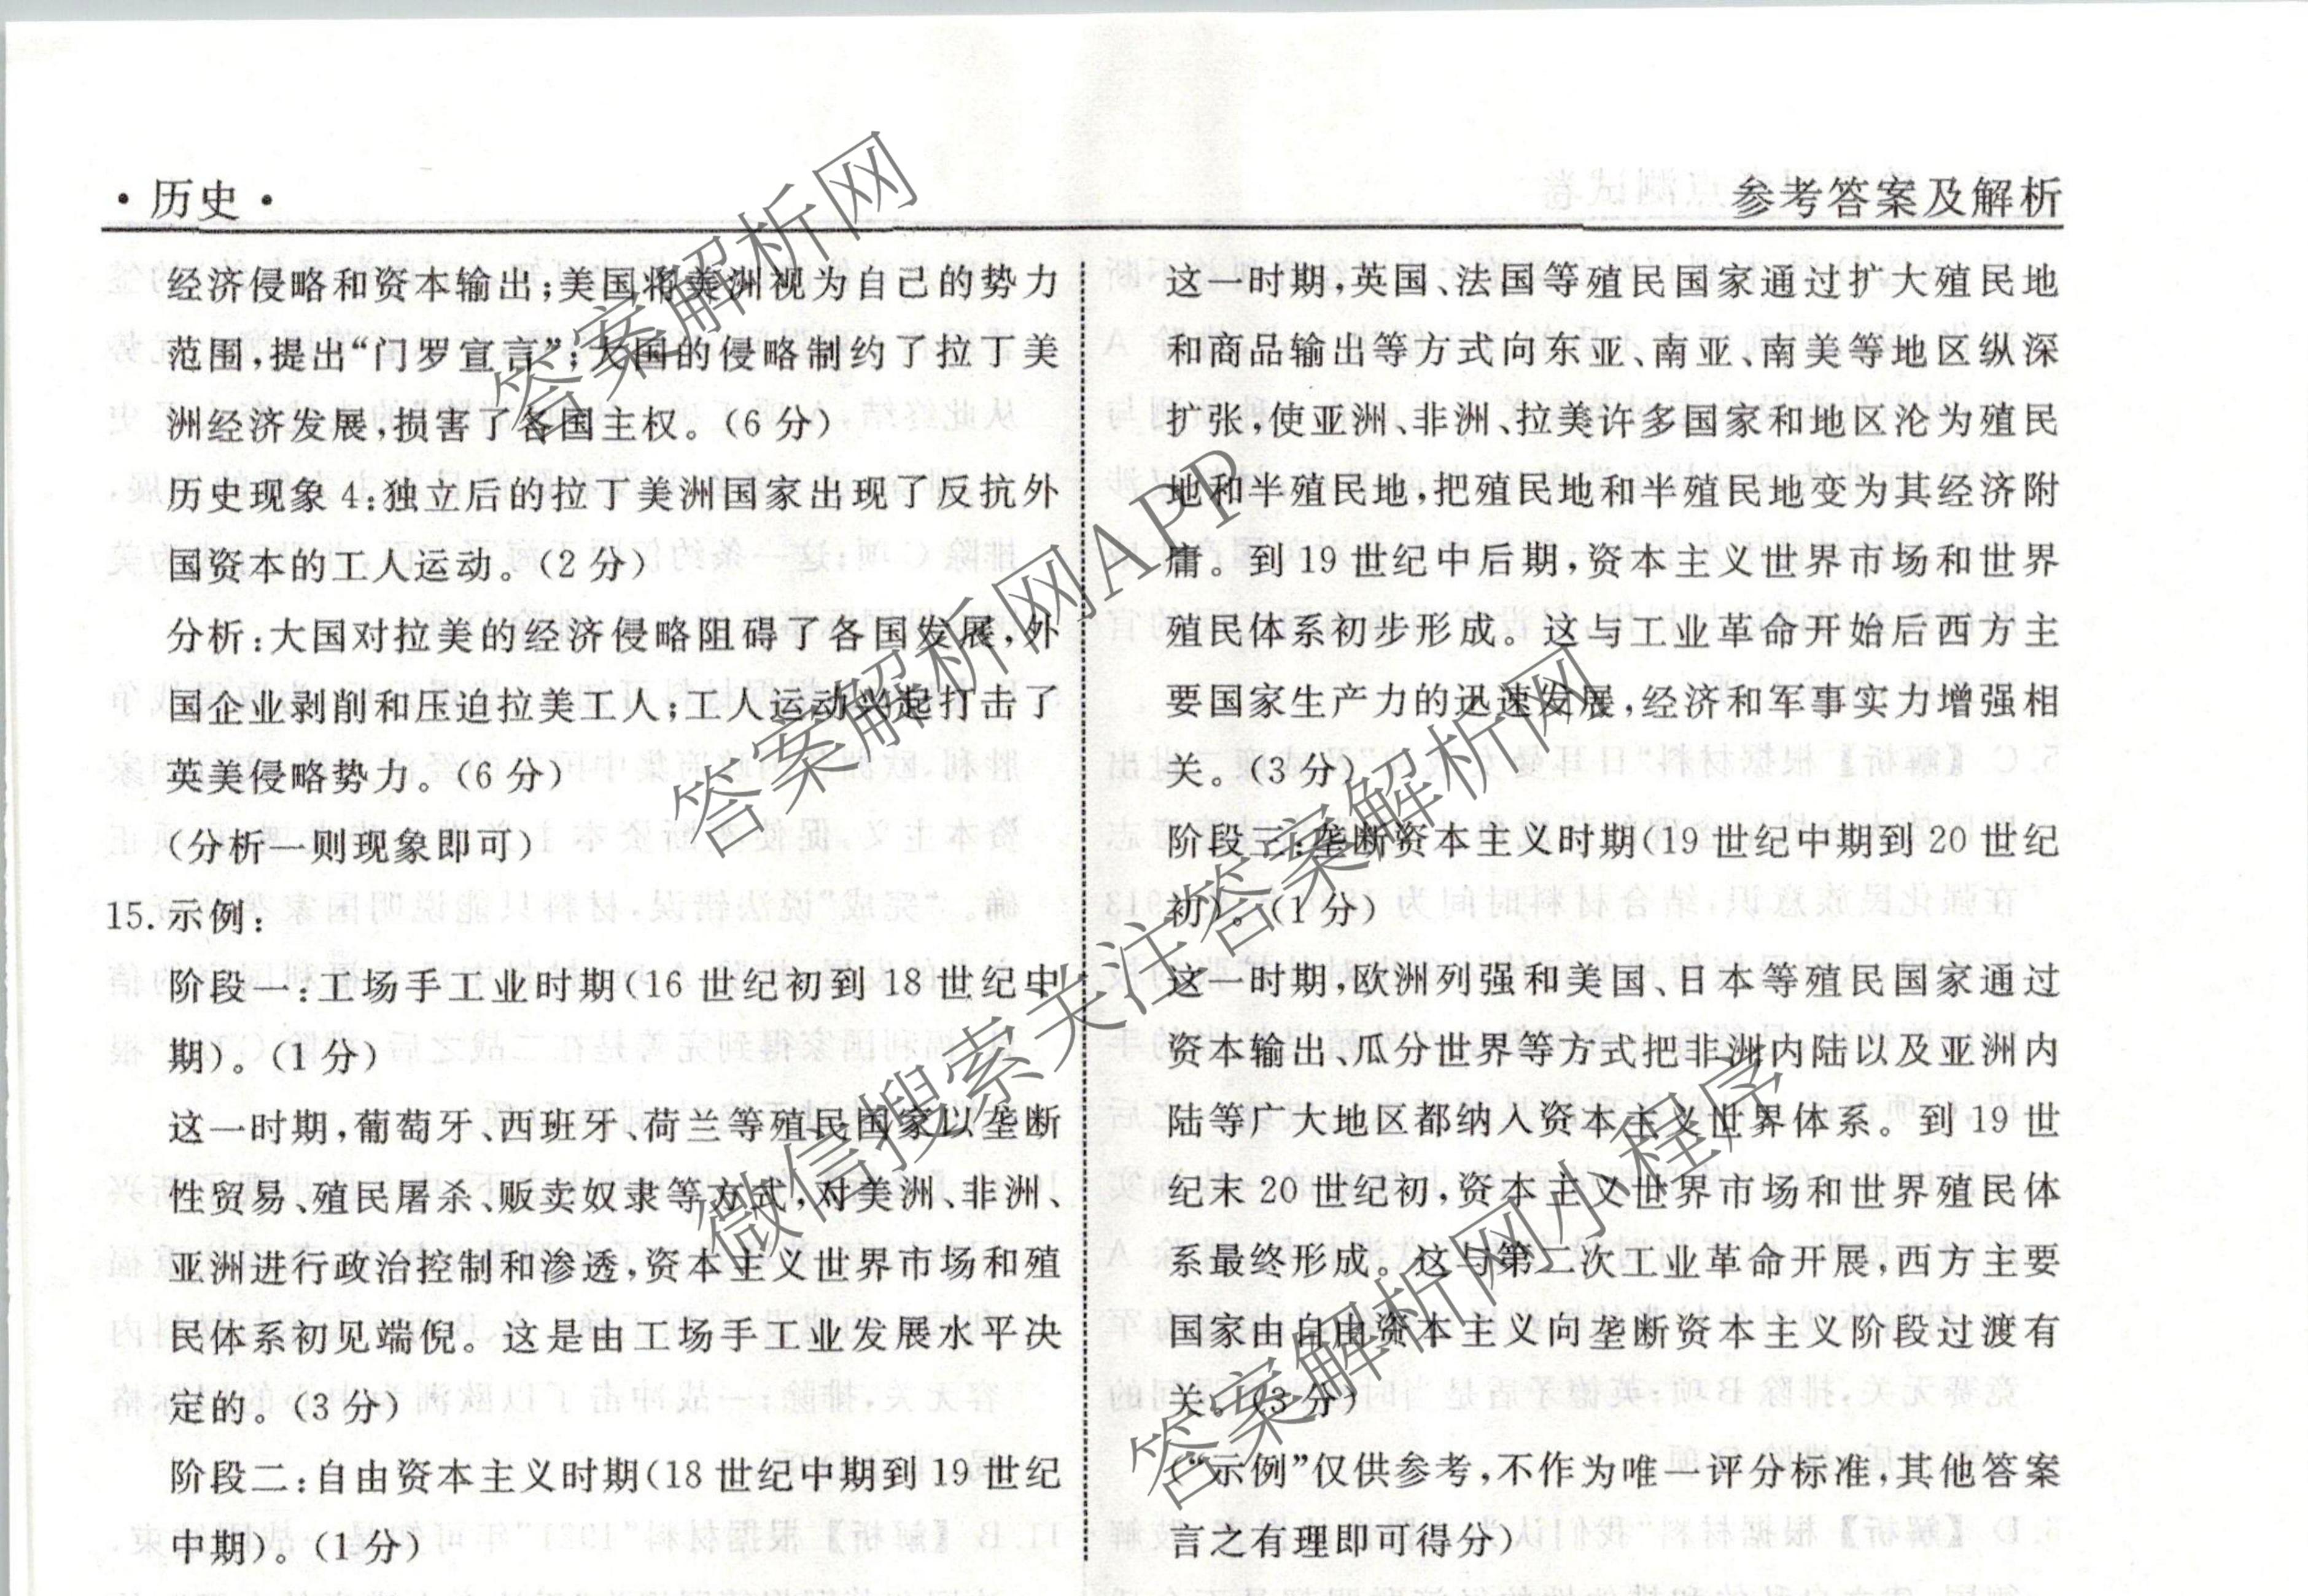 ·历史·
参考答案及解析
经济侵略和资本输出;美国将美洲视为自己的势力
范围,提出“门罗宣言”;大国的侵略制约了拉丁美
洲经济发展,损害了各国主权。(6分)
历史现象4:独立后的拉丁美洲国家出现了反抗外
国资本的工人运动。(2分)
分析:大国对拉美的经济侵略阻碍了各国发展,外
国企业剥削和压迫拉美工人;工人运动兴起打击了
英美侵略势力。(6分)
(分析一则现象即可)
15.示例:
阶段一:工场手工业时期(16世纪初到18世纪中
期)。(1分)
这一时期,葡萄牙、西班牙、荷兰等殖民国家以垄断
性贸易、殖民屠杀、贩卖奴隶等方式,对美洲、非洲、
亚洲进行政治控制和渗透,资本主义世界市场和殖
民体系初见端倪。这是由工场手工业发展水平决
定的。(3分)
阶段二:自由资本主义时期(18世纪中期到19世纪
中期)。(1分)
这一时期,英国、法国等殖民国家通过扩大殖民地
和商品输出等方式向东亚、南亚、南美等地区纵深
扩张,使亚洲、非洲、拉美许多国家和地区沦为殖民
地和半殖民地,把殖民地和半殖民地变为其经济附
庸。到19世纪中后期,资本主义世界市场和世界
殖民体系初步形成。这与工业革命开始后西方主
要国家生产力的迅速发展,经济和军事实力增强相
关。(3分)
阶段三:垄断资本主义时期(19世纪中期到20世纪
初)。(1分)
这一时期,欧洲列强和美国、日本等殖民国家通过
资本输出、瓜分世界等方式把非洲内陆以及亚洲内
陆等广大地区都纳入资本主义世界体系。到19世
纪末20世纪初,资本主义世界市场和世界殖民体
系最终形成。这与第二次工业革命开展,西方主要
国家由自由资本主义向垄断资本主义阶段过渡有
关。(3分)
(“示例”仅供参考,不作为唯一评分标准,其他答案
言之有理即可得分)
答案解析网
答案解析网APP
微信搜索关注答案解析网
答案解析网小程序